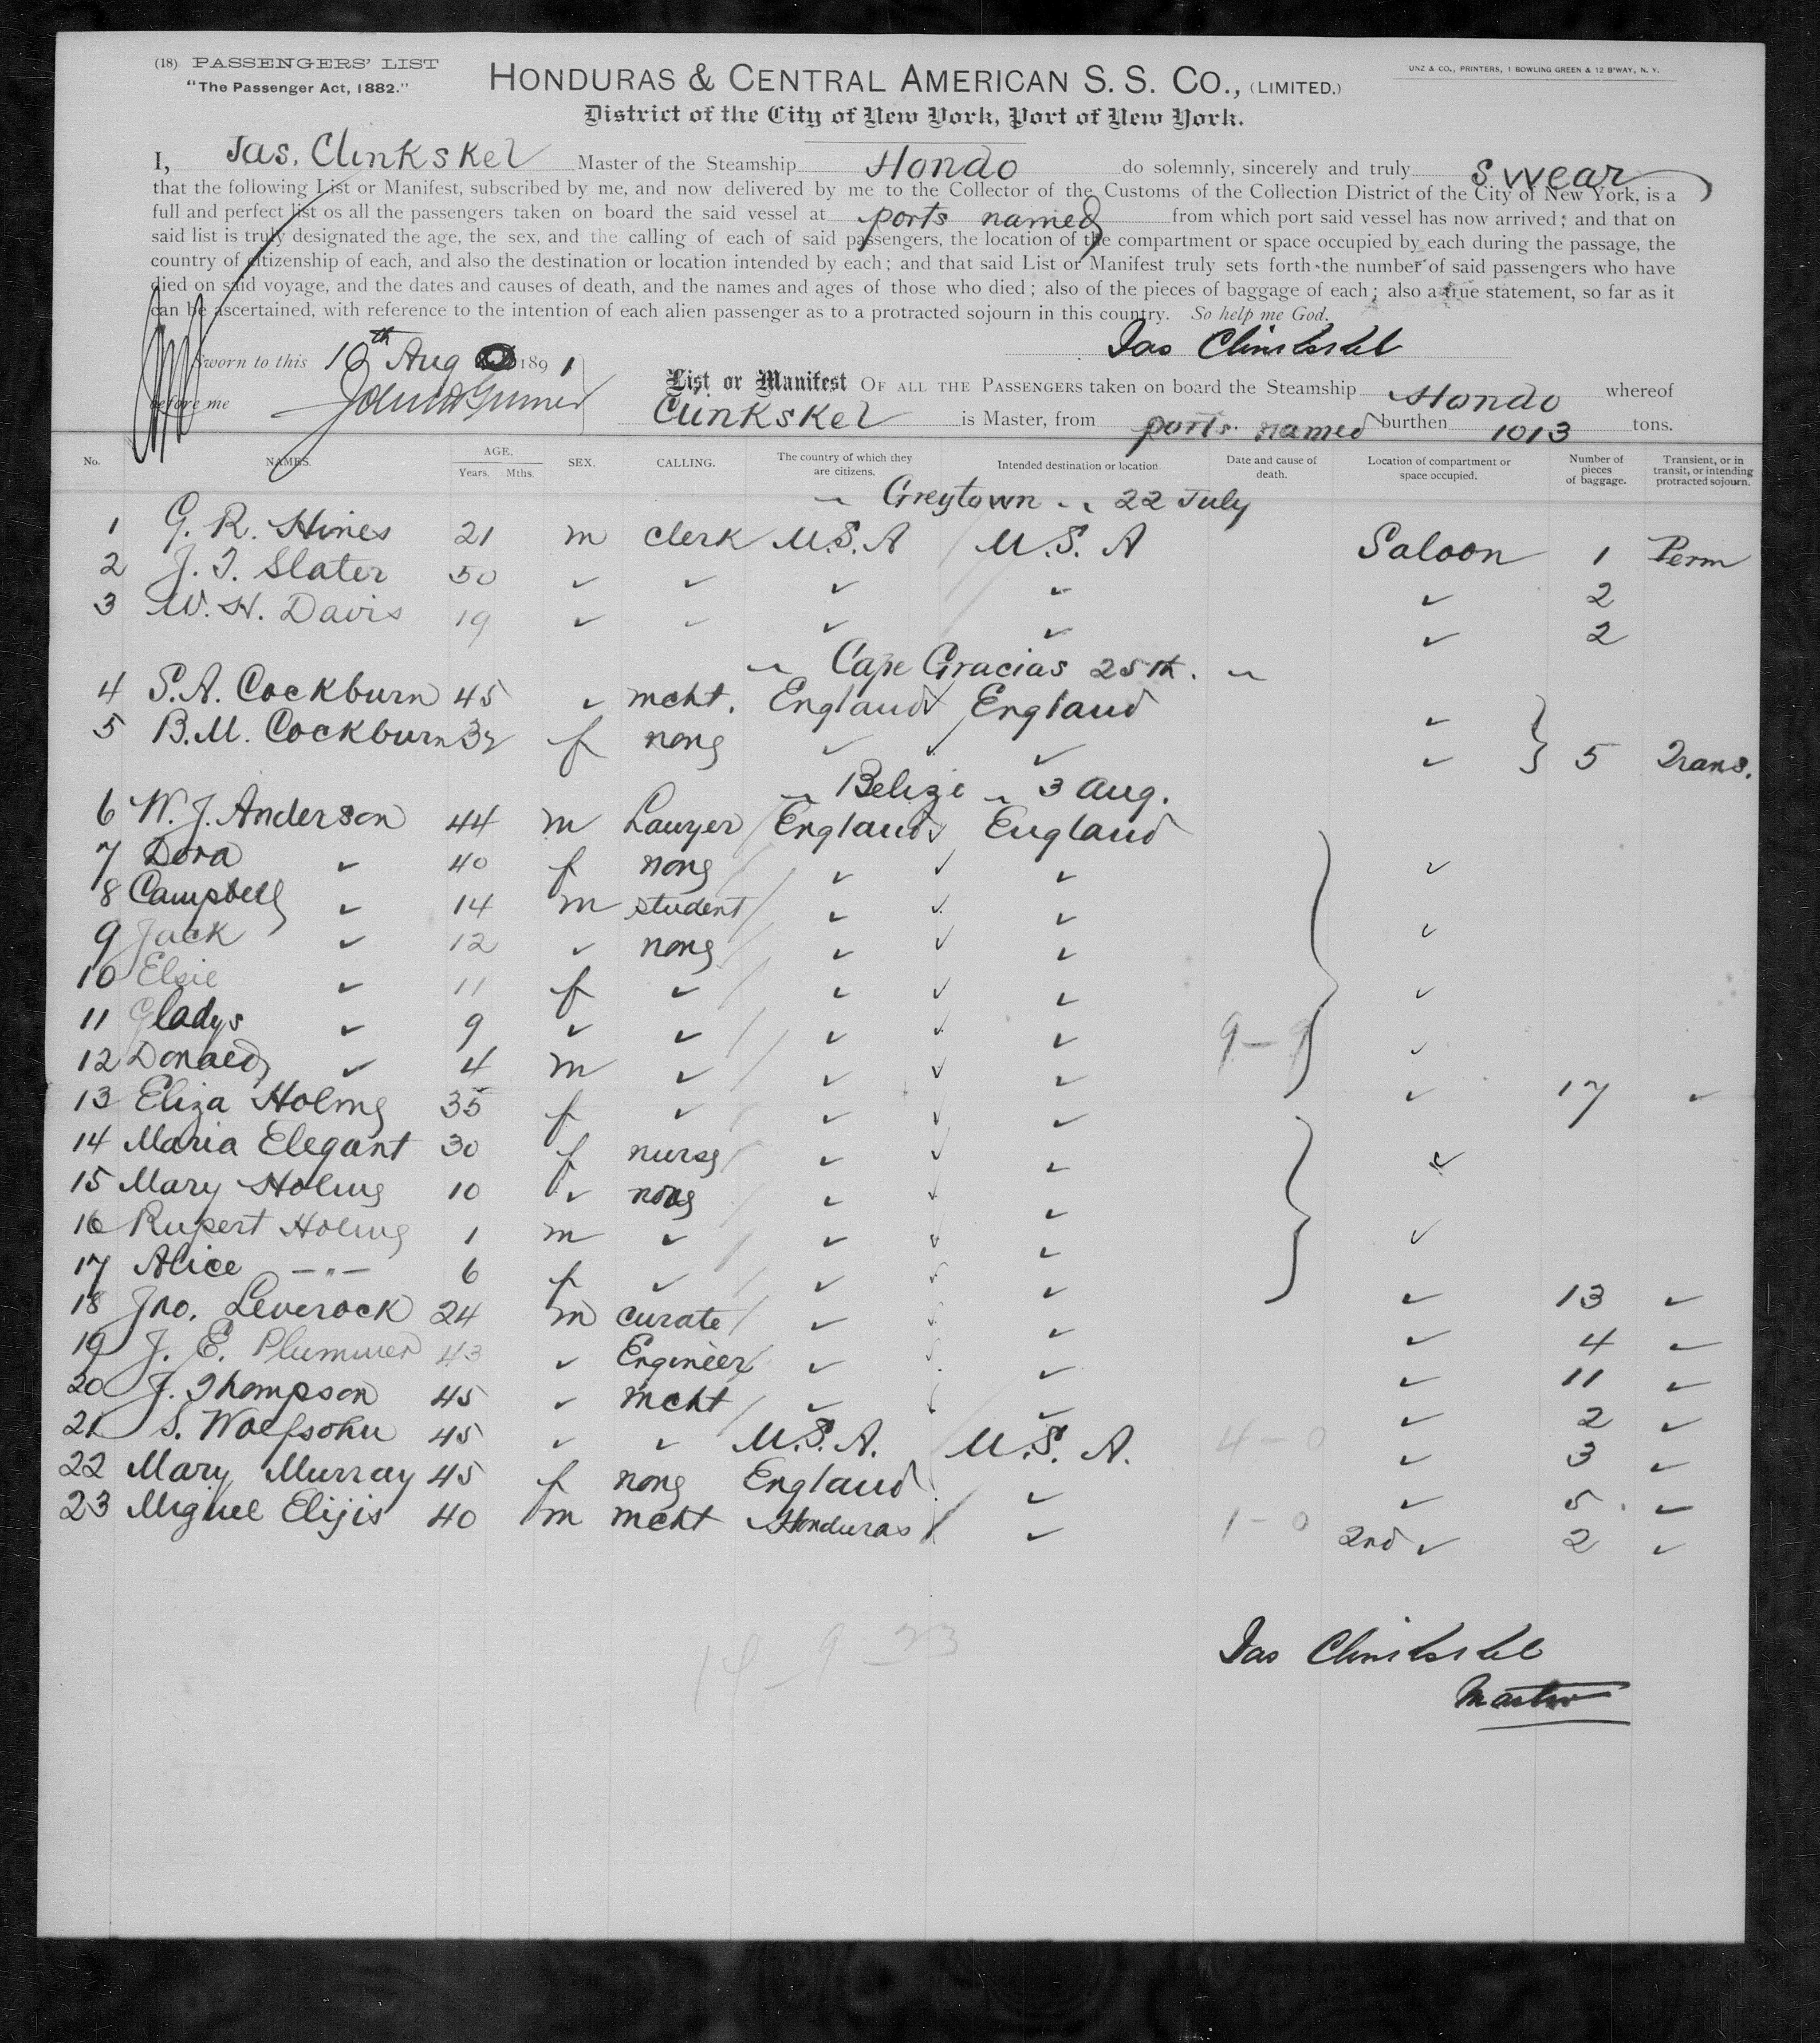 (18) PASSENGERS' LIST
"The Passenger Act, 1882."
HONDURAS & CENTRAL AMERICAN S. S. CO., (LIMITED.)
UNZ & CO., PRINTERS, 1 BOWLING GREEN & 12 B'WAY, N. Y.
District of the City of New York, Port of New York.
I, Jas. Clinkskel Master of the Steamship Hondo do solemnly, sincerely and truly swear
that the following List or Manifest, subscribed by me, and now delivered by me to the Collector of the Customs of the Collection District of the City of New York, is a
full and perfect list os all the passengers taken on board the said vessel at ports named from which port said vessel has now arrived; and that on
said list is truly designated the age, the sex, and the calling of each of said passengers, the location of the compartment or space occupied by each during the passage, the
country of citizenship of each, and also the destination or location intended by each; and that said List or Manifest truly sets forth the number of said passengers who have
died on said voyage, and the dates and causes of death, and the names and ages of those who died; also of the pieces of baggage of each; also a true statement, so far as it
can be ascertained, with reference to the intention of each alien passenger as to a protracted sojourn in this country. So help me God.
Jas Clinkskel
Sworn to this 10th Aug 1891
before me
List or Manifest OF ALL THE PASSENGERS taken on board the Steamship Hondo whereof
Clinkskel is Master, from ports named burthen 1013 tons.
No. NAMES. AGE. Years. Mths. SEX. CALLING. The country of which they are citizens. Intended destination or location. Date and cause of death. Location of compartment or space occupied. Number of pieces of baggage. Transient, or in transit, or intending protracted sojourn.
~ Greytown ~ 22 July
1 G. R. Hines 21 m clerk U.S.A U.S.A Saloon 1 Perm
2 J. T. Slater 50 ✓ ✓ ✓ ✓ ✓ 2
3 W. H. Davis 19 ✓ ✓ ✓ ✓ ✓ 2
~ Cape Gracias 25th. ~
4 S. A. Cockburn 45 ✓ mcht. England England ✓
5 B. M. Cockburn 32 f none ✓ ✓ ✓ 5 Trans.
~ Belize ~ 3 Aug.
6 W. J. Anderson 44 m Lawyer England England
7 Dora ✓ 40 f none ✓ ✓ ✓
8 Campbell ✓ 14 m student ✓ ✓
9 Jack ✓ 12 ✓ none ✓ ✓ ✓
10 Elsie ✓ 11 f ✓ ✓ ✓ ✓
11 Gladys ✓ 9 ✓ ✓ ✓ ✓ 9 - 9 ✓
12 Donald ✓ 4 m ✓ ✓ ✓ ✓ 17 ✓
13 Eliza Holme 35 f ✓ ✓ ✓
14 Maria Elegant 30 f nurse ✓ ✓ ✓
15 Mary Holme 10 ✓ none ✓ ✓
16 Rupert Holme 1 m ✓ ✓ ✓ ✓
17 Alice -"- 6 f ✓ ✓ ✓ ✓ 13 ✓
18 Jno. Leverock 24 m curate ✓ ✓ ✓ 4 ✓
19 J. E. Plummer 43 ✓ Engineer ✓ ✓ ✓ 11 ✓
20 J. Thompson 45 ✓ mcht ✓ ✓ ✓ 2 ✓
21 S. Wolfsohn 45 ✓ ✓ U.S.A. U.S.A. 4 - 0 ✓ 3 ✓
22 Mary Murray 45 f none England ✓ ✓ 5 ✓
23 Miguel Elijis 40 m mcht Honduras ✓ 1 - 0 2nd ✓ 2 ✓
14 - 9 - 23
Jas Clinkskel
Master